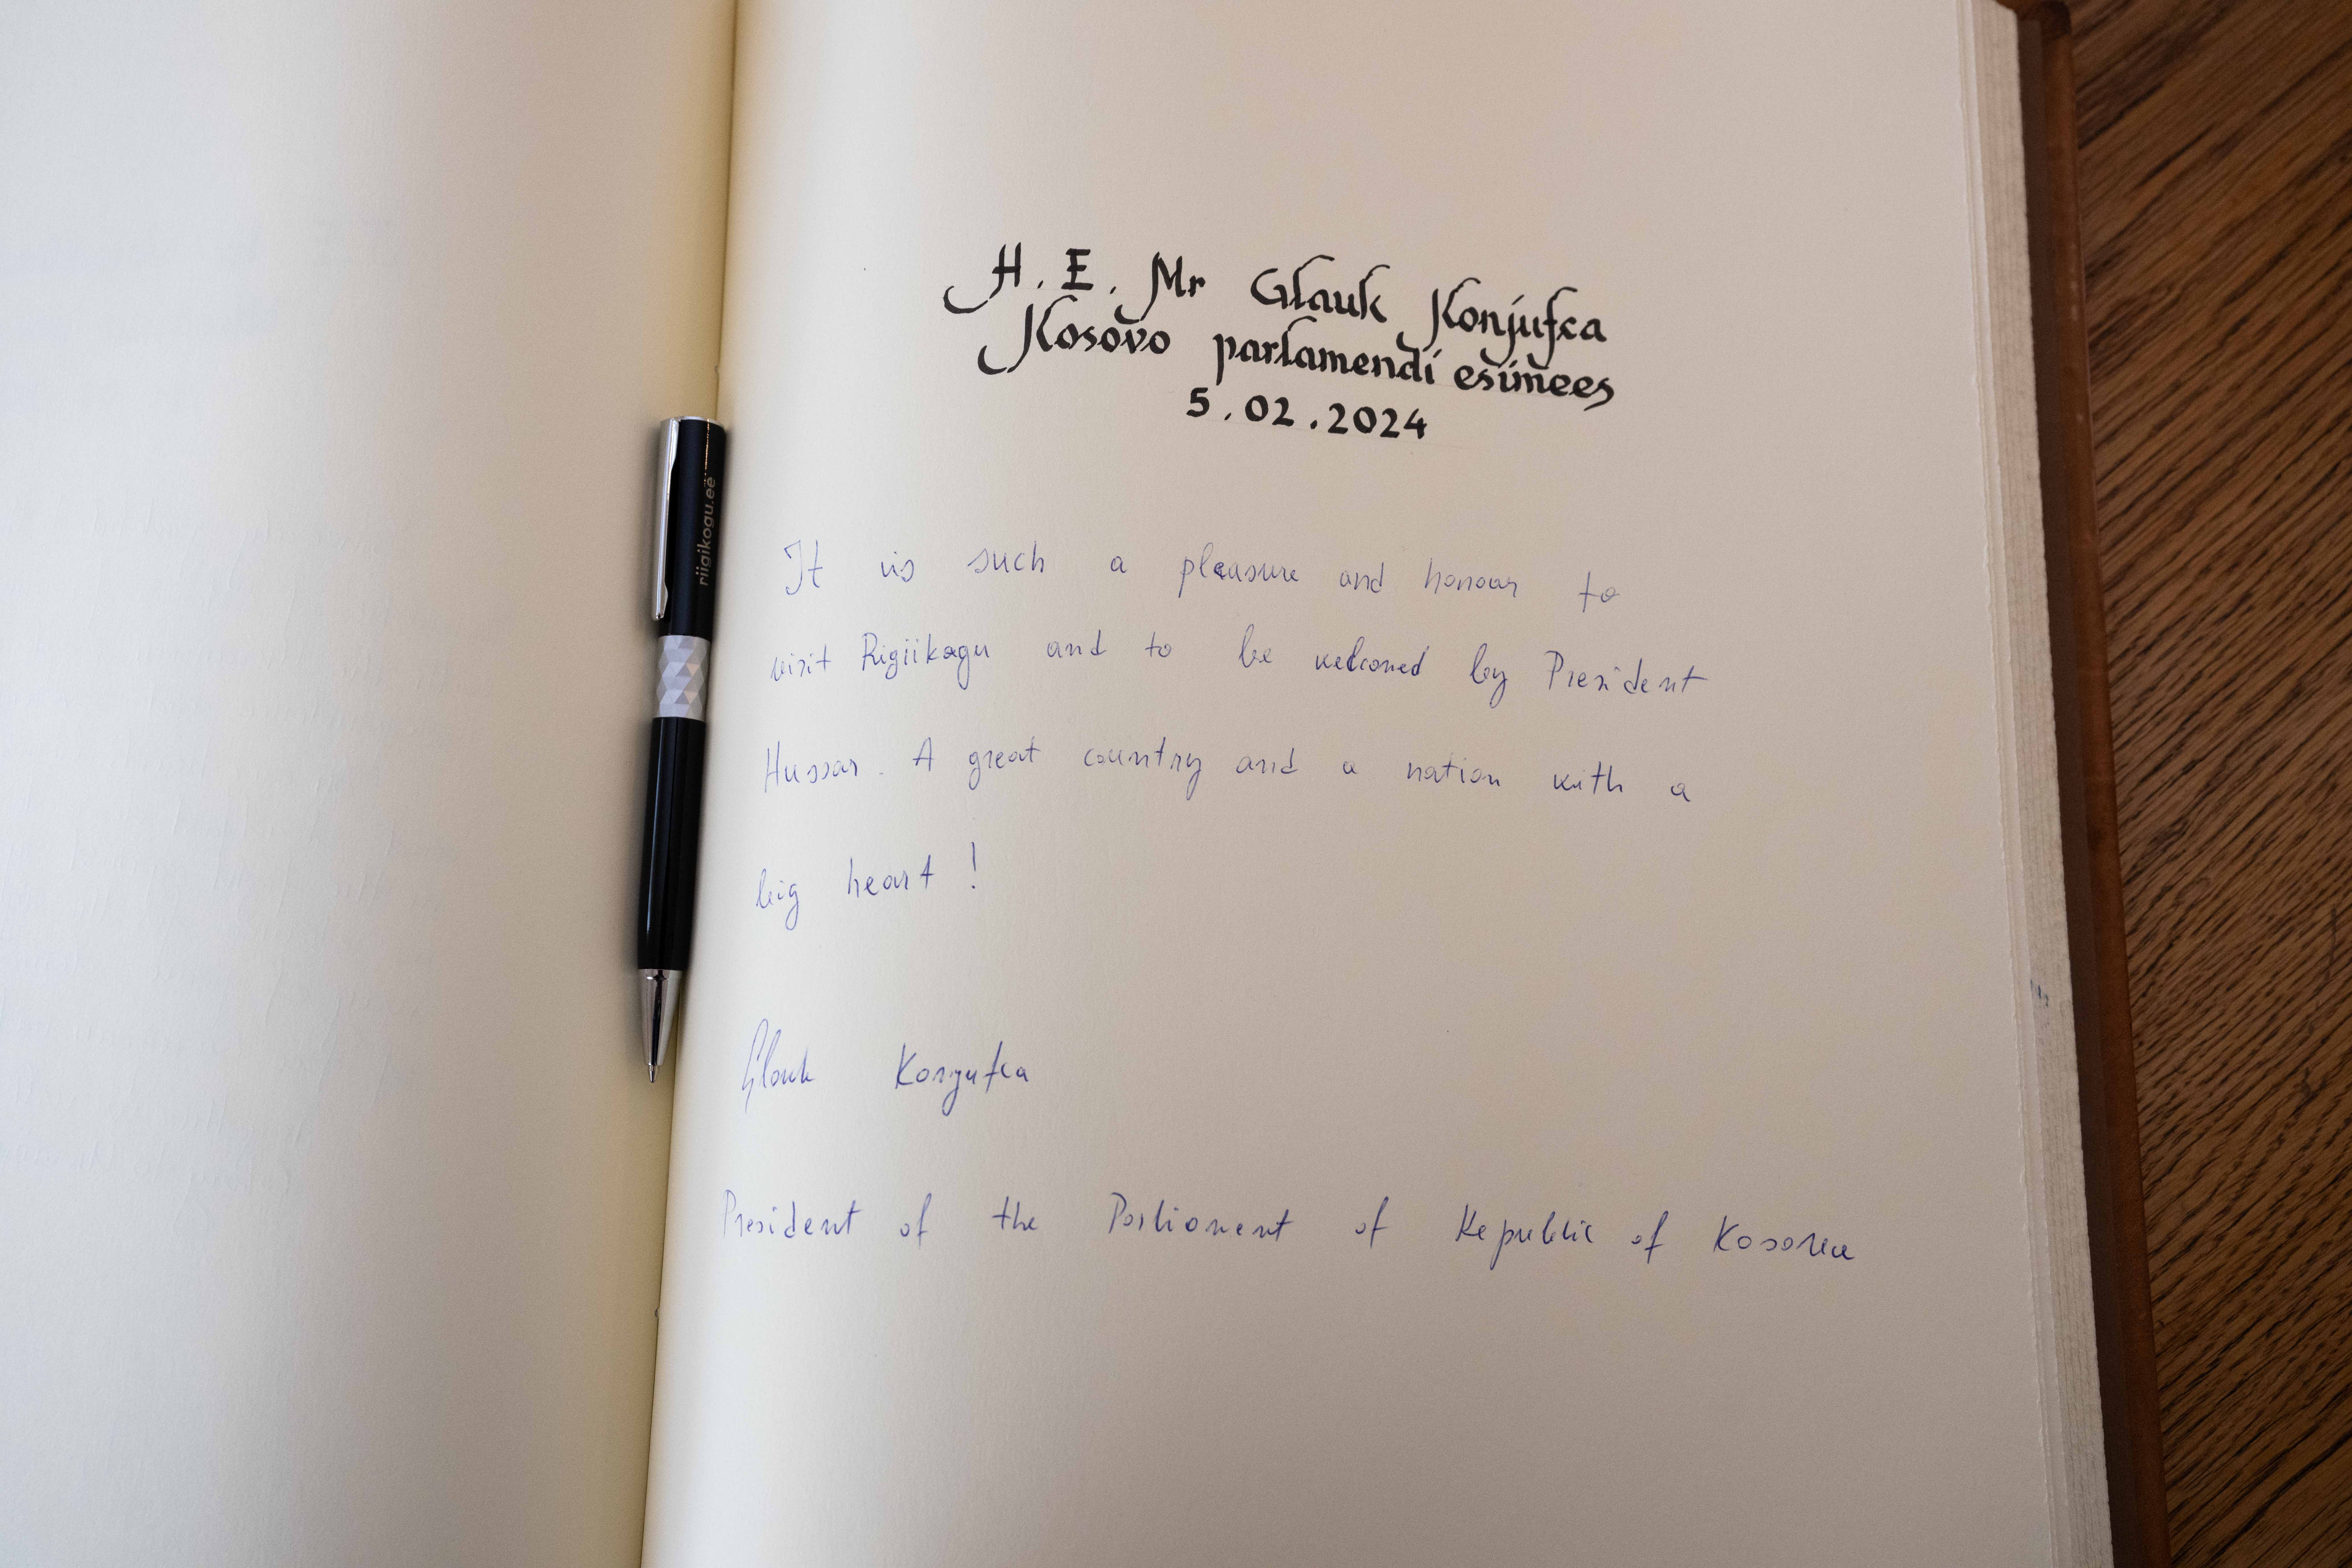 H. E. Mr Glauk Konjufca
Kosovo parlamendi esimees
5.02.2024
riigikogu.ee
It is such a pleasure and honour to
visit Rigiikogu and to be welcomed by President
Hussar. A great country and a nation with a
big heart!
Glauk Konjufca
President of the Parliament of Republic of Kosova